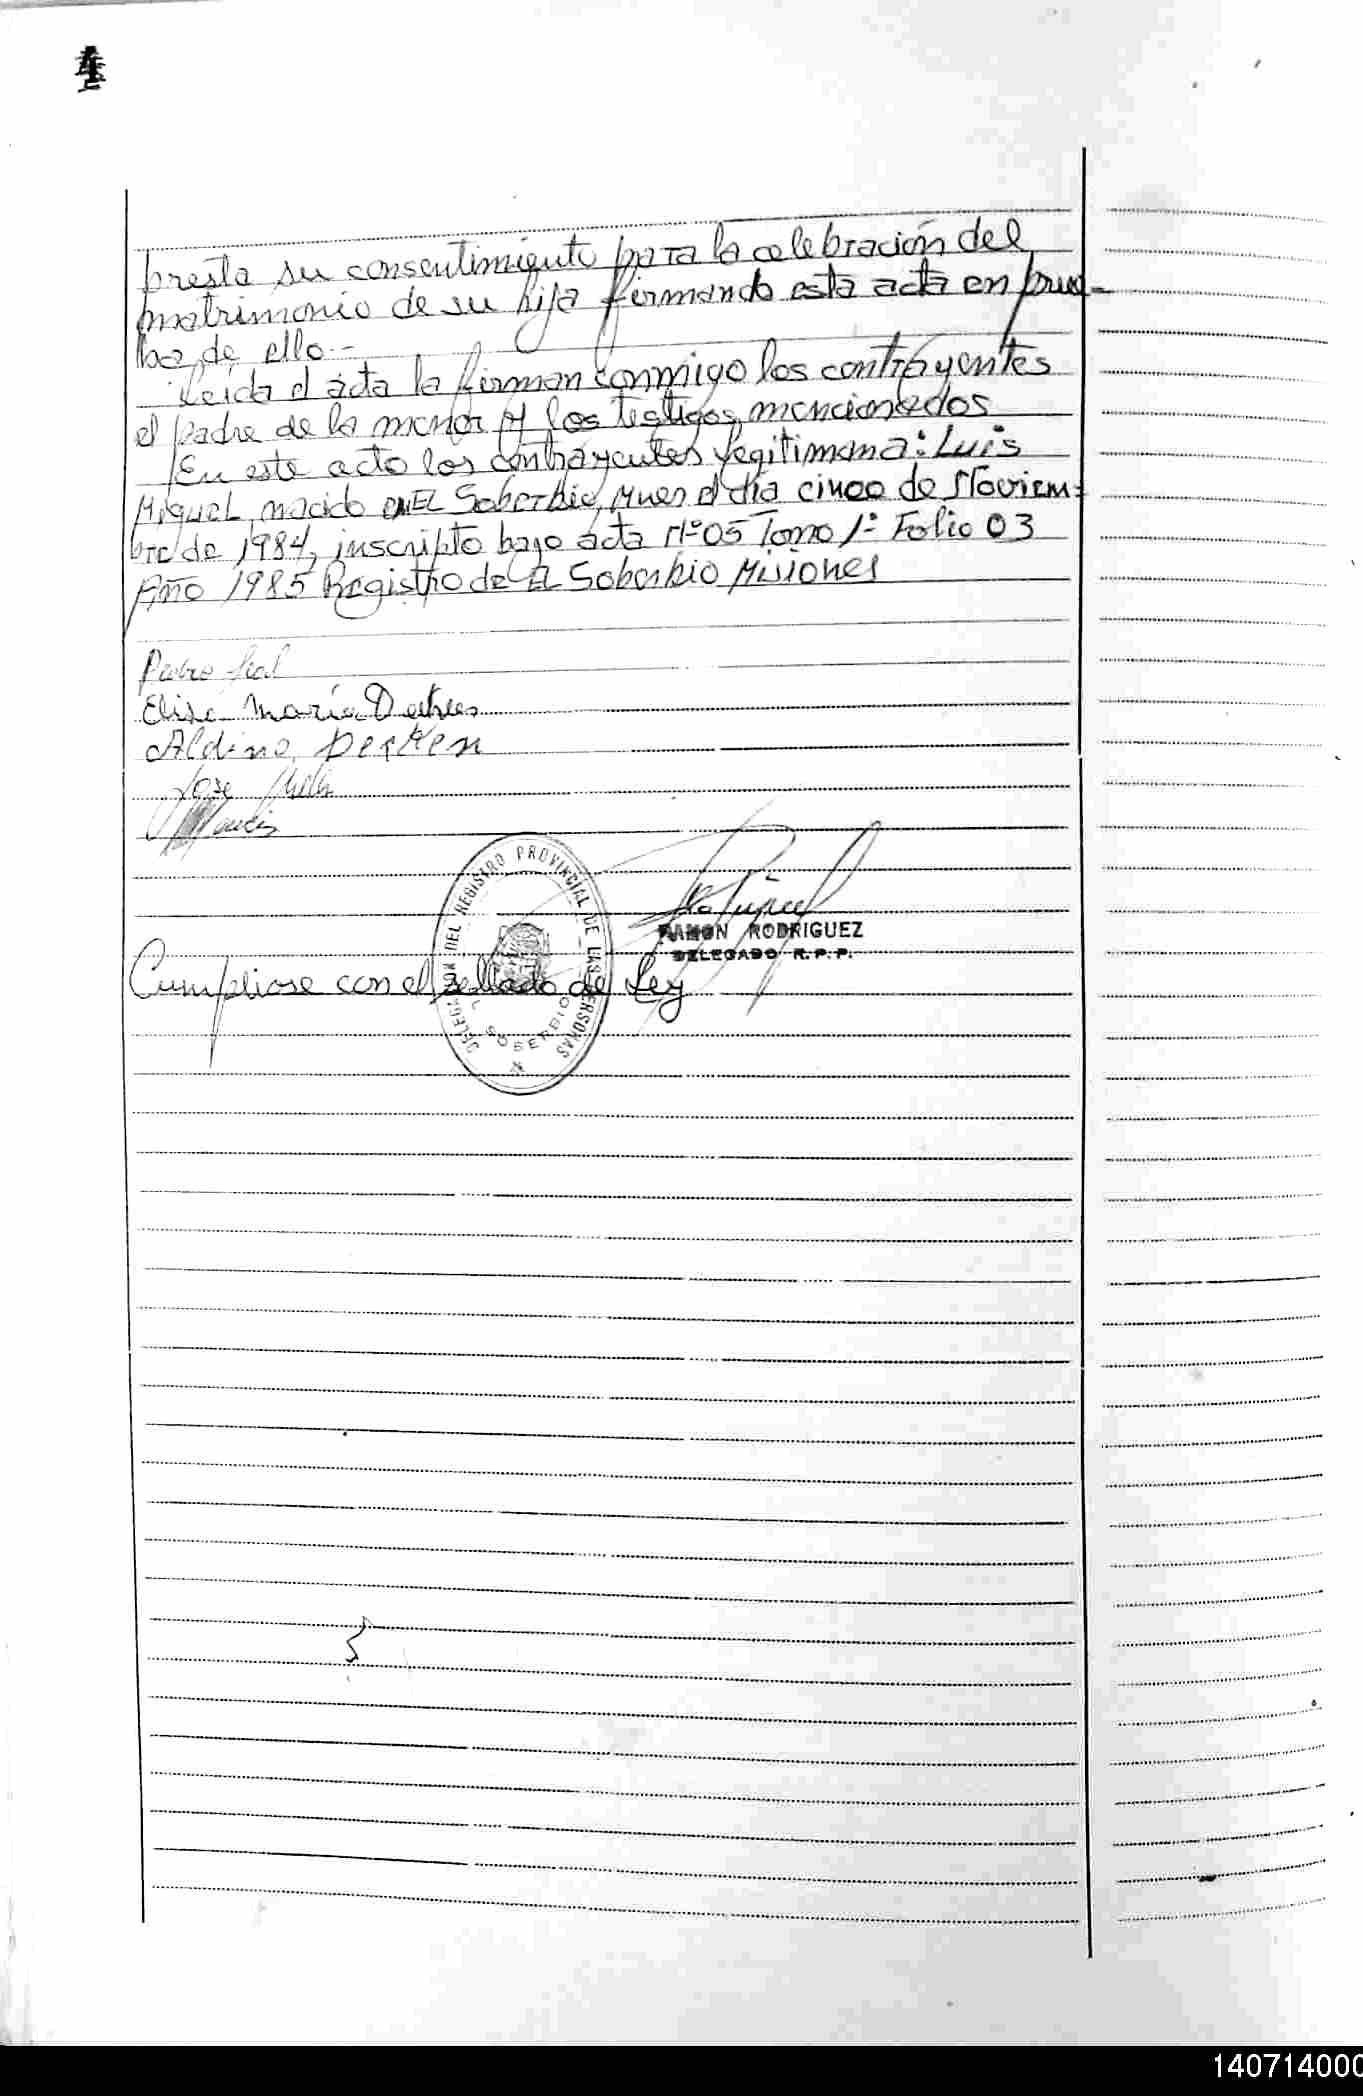 presta su consentimiento para la celebración del
matrimonio de su hija firmando esta acta en prue-
ba de ello.-
Leida el acta la firman conmigo los contrayentes
el padre de la menor y los testigos mencionados
En este acto los contrayentes legitiman a: Luis
Miguel, nacido en EL Soberbio, Mnes el día cinco de Noviem-
bre de 1984, inscripto bajo acta Nº 05 Tomo 1º Folio 03
Año 1985 Registro de El Soberbio Misiones
Pedro
Elisa María
Aldino Derken
Jose
DELEGACION DEL REGISTRO PROVINCIAL DE LAS PERSONAS
EL SOBERBIO
RAMON RODRIGUEZ
DELEGADO R.P.P.
Cumpliose con el sellado de Ley
140714000